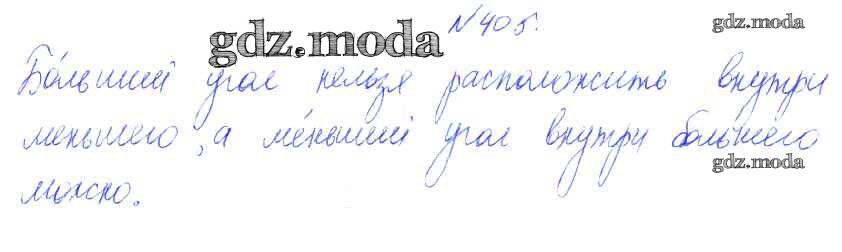 №405.
gdz.moda
gdz.moda
Бо́льший угол нельзя расположить внутри
меньшего, а ме́ньший угол внутри большего
gdz.moda
можно.